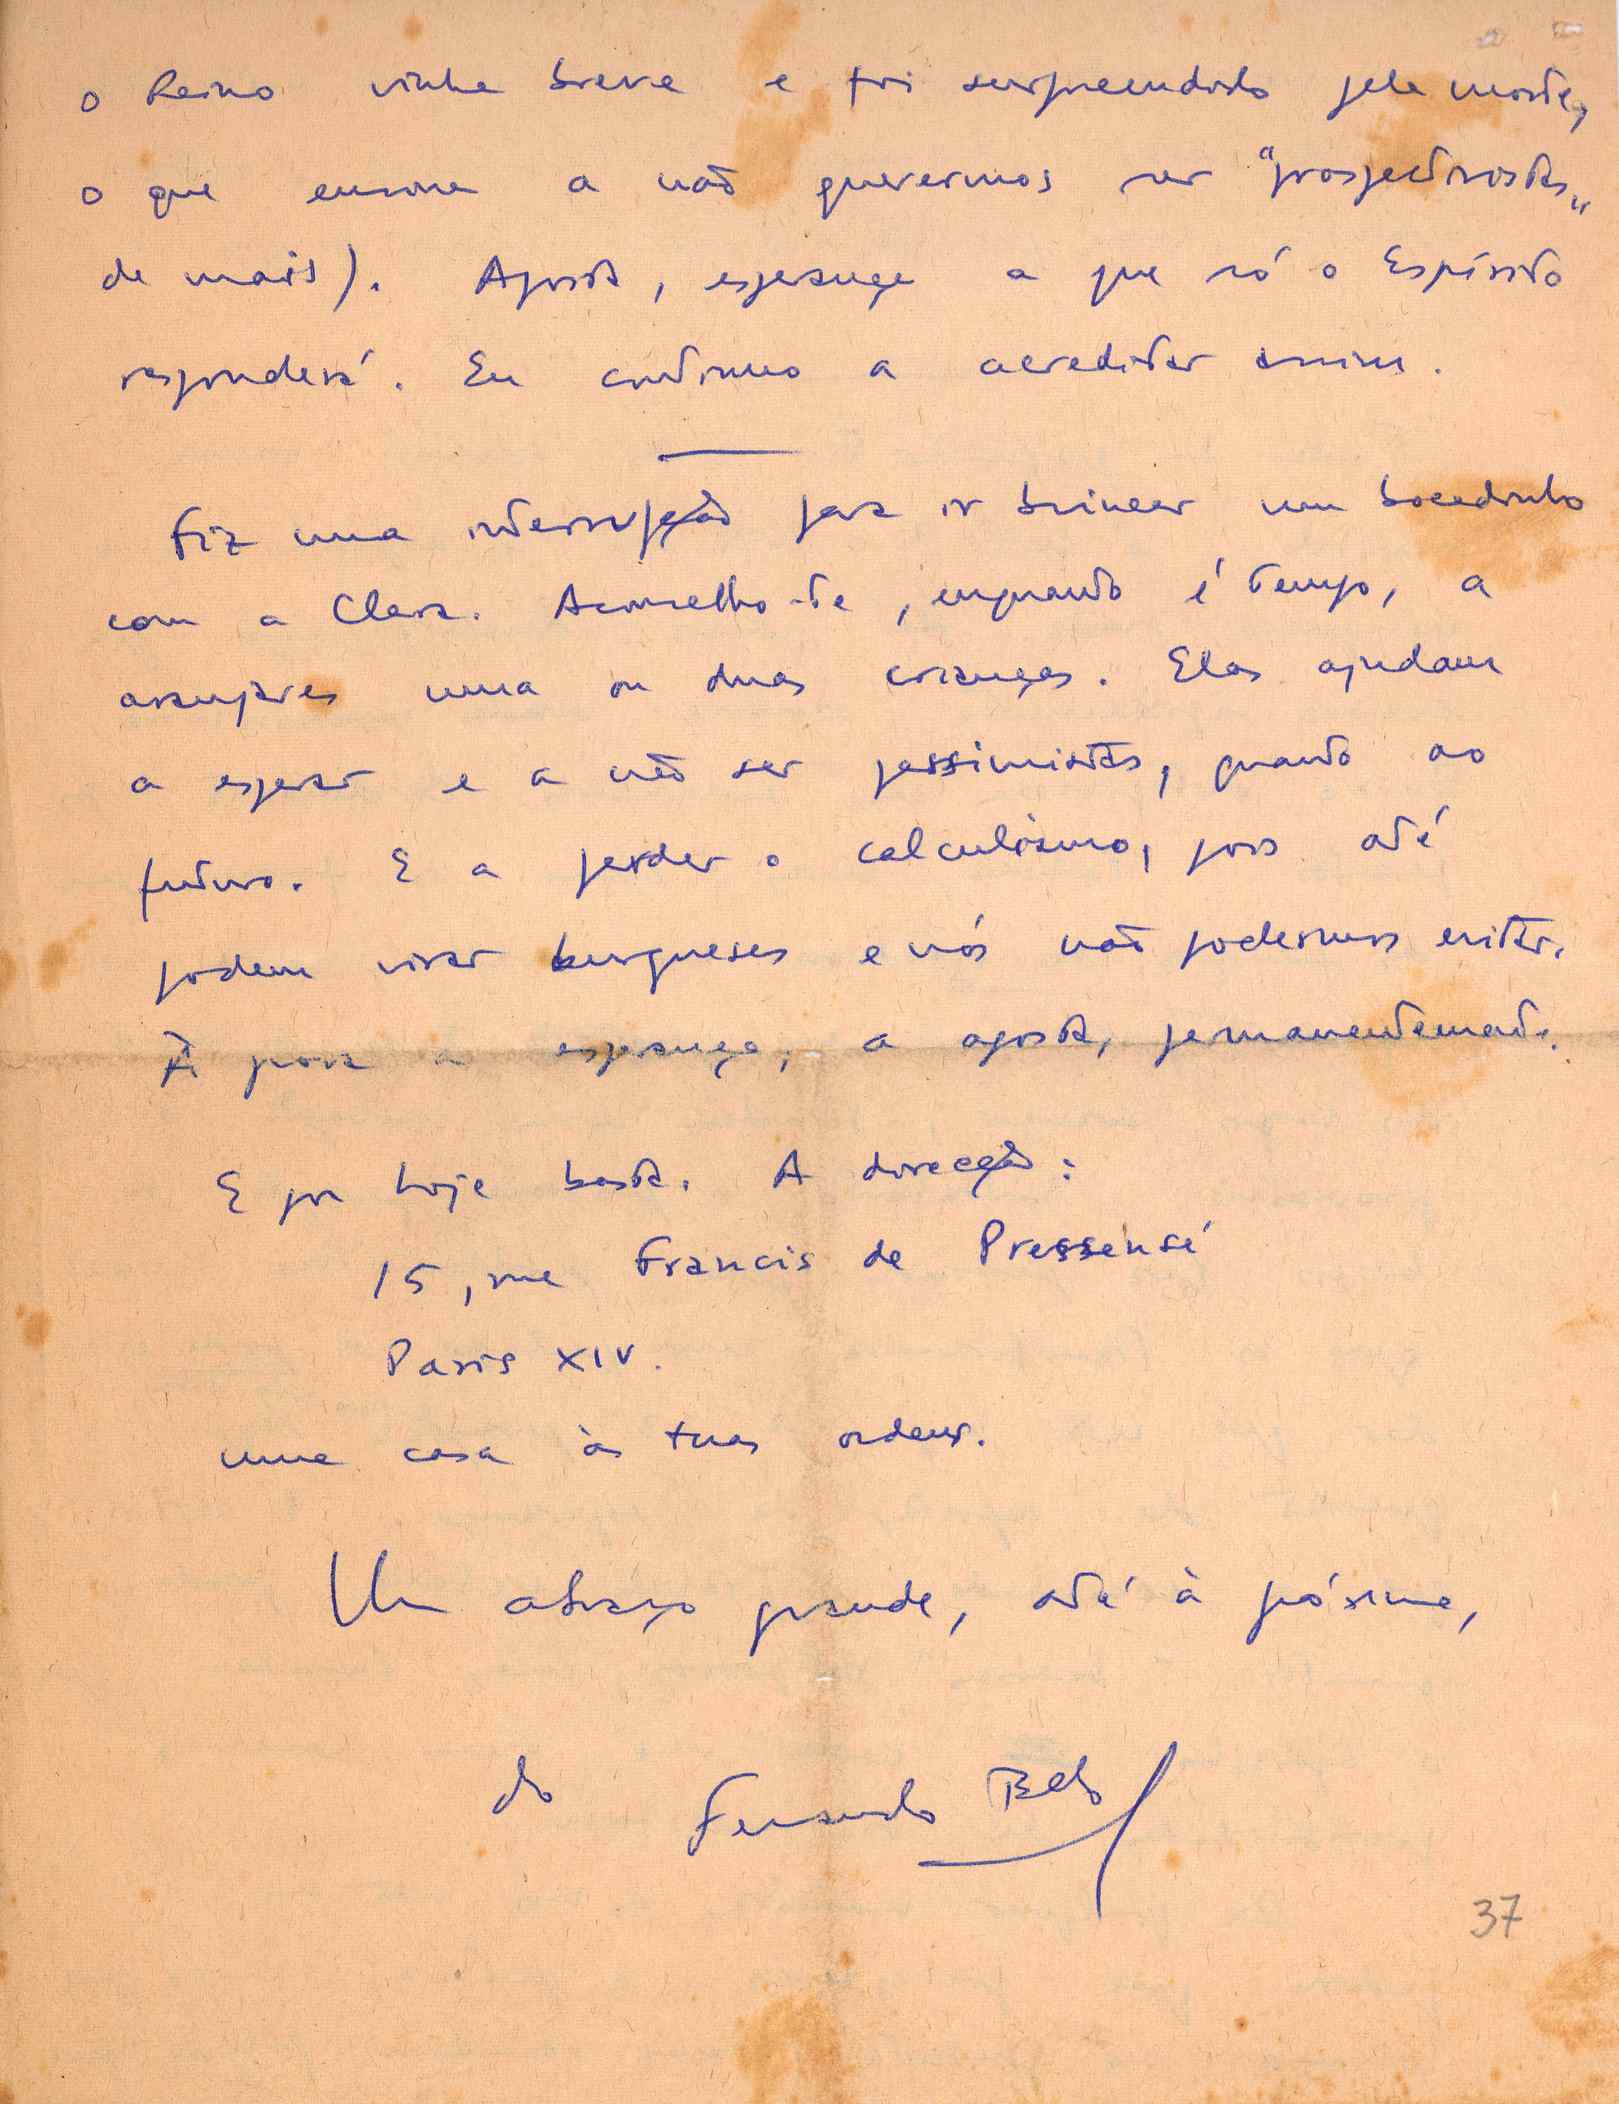 o Reino vinha breve e foi surpreendido pela morte,
o que ensina a não querermos ser "prospectivistas"
de mais). Aposta, esperança a que só o Espírito
responderá. Eu continuo a acreditar assim.
Fiz uma interrupção para ir brincar um bocadinho
com a Clara. Aconselho-te, enquanto é tempo, a
arranjares uma ou duas crianças. Elas ajudam
a esperar e a não ser pessimistas, quanto ao
futuro. E a perder o calculismo, pois até
podem virar burgueses e nós não podermos evitar.
É pois a esperança, a aposta, permanentemente.
E por hoje basta. A direcção:
15, rue Francis de Pressensé
Paris XIV.
uma casa às tuas ordens.
Um abraço grande, até à próxima,
do Fernando Belo
37